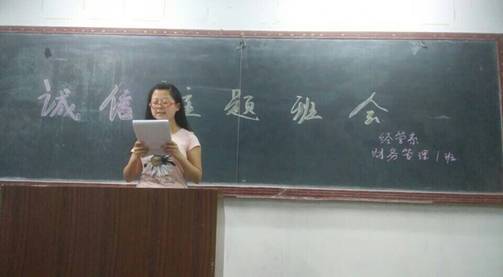 誠信主题班会
经管系
财务管理1班